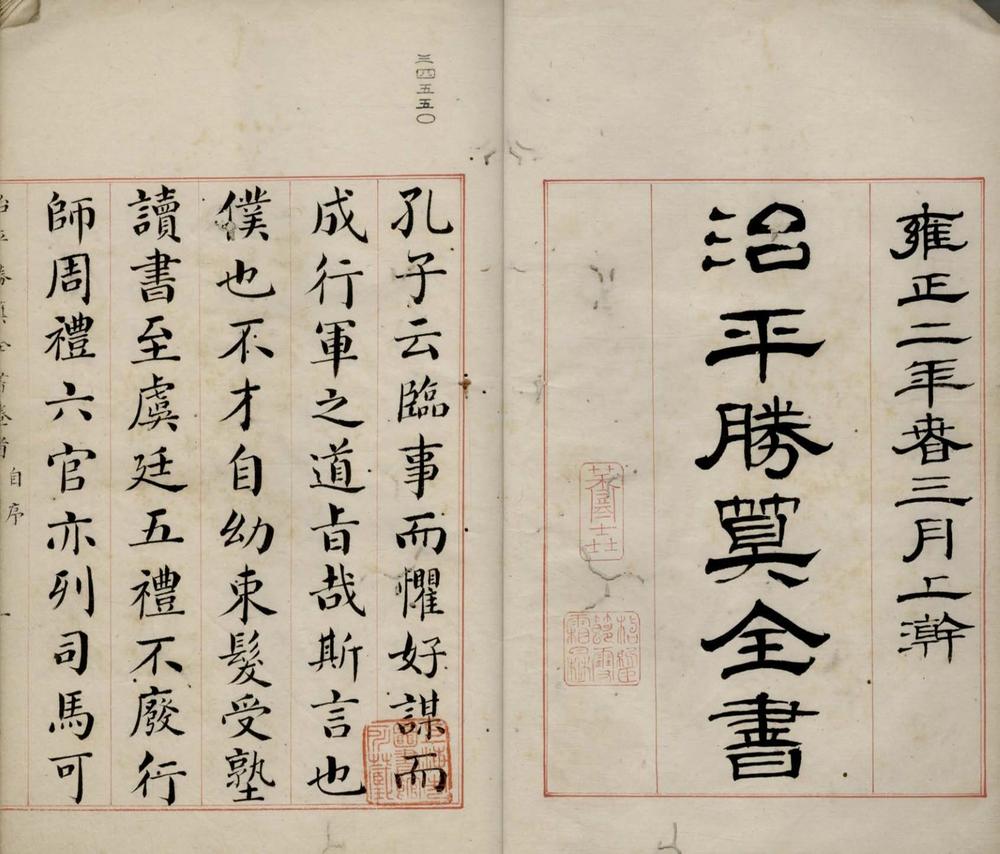 雍正二年春三月上澣
治平勝筭全書
三四五五〇
孔子云臨事而懼好謀而
成行軍之道旨哉斯言也
僕也不才自幼束髮受塾
讀書至虞廷五禮不廢行
師周禮六官亦列司馬可
自序
一